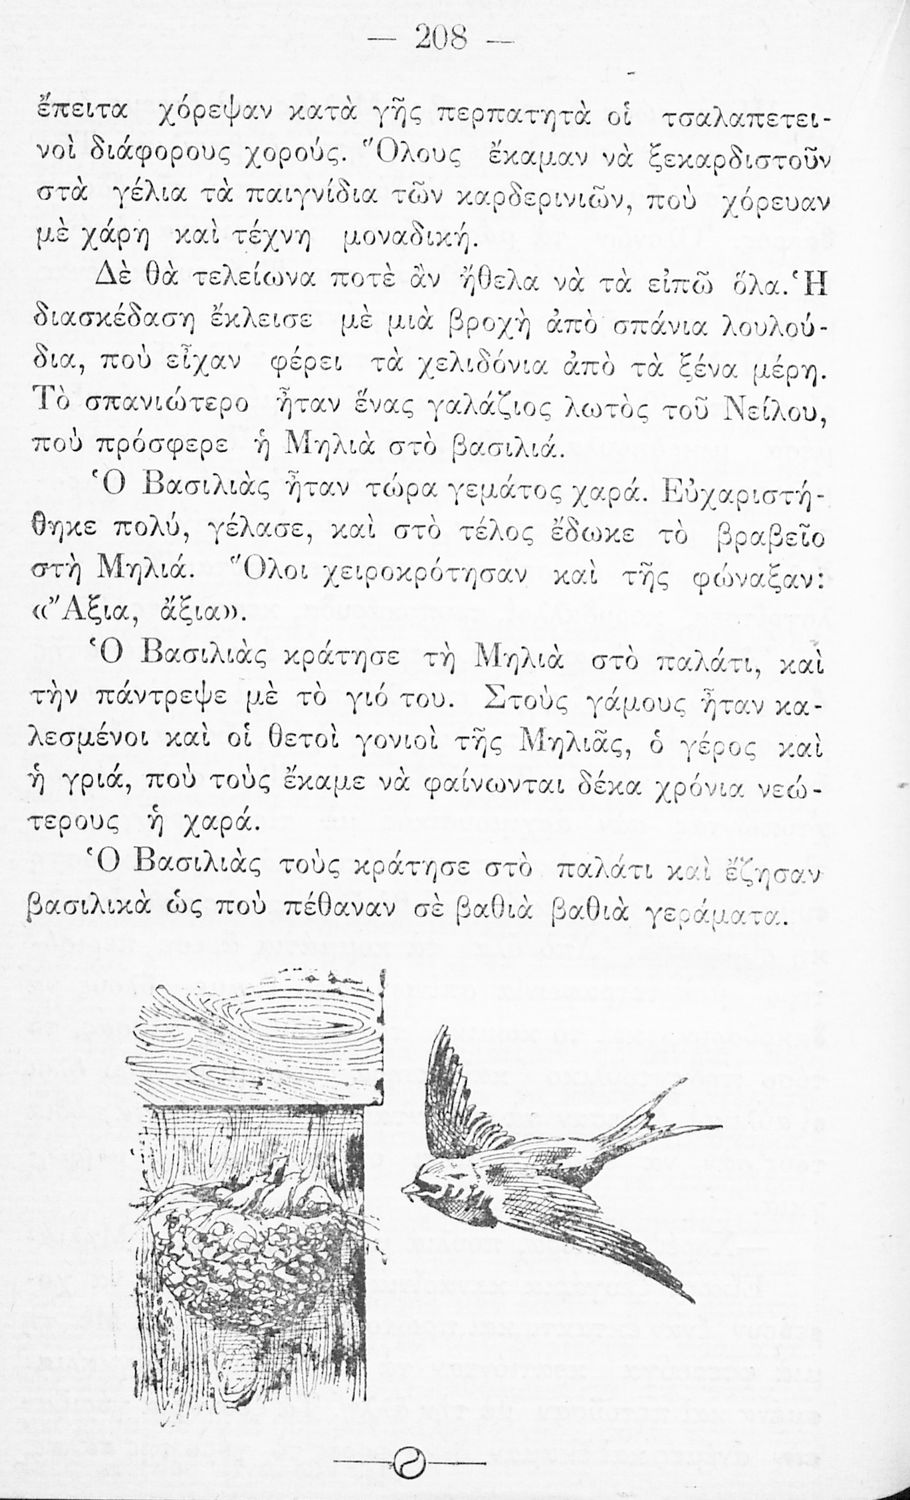 — 208 —
ἔπειτα χόρεψαν κατὰ γῆς περπατητὰ οἱ τσαλαπετει-
νοὶ διάφορους χορούς. Ὅλους ἔκαμαν νὰ ξεκαρδιστοῦν
στὰ γέλια τὰ παιγνίδια τῶν καρδερινιῶν, ποὺ χόρευαν
μὲ χάρη καὶ τέχνη μοναδική.
Δὲ θὰ τελείωνα ποτὲ ἂν ἤθελα νὰ τὰ εἰπῶ ὅλα. Ἡ
διασκέδαση ἔκλεισε μὲ μιὰ βροχὴ ἀπὸ σπάνια λουλού-
δια, ποὺ εἶχαν φέρει τὰ χελιδόνια ἀπὸ τὰ ξένα μέρη.
Τὸ σπανιώτερο ἦταν ἕνας γαλάζιος λωτὸς τοῦ Νείλου,
ποὺ πρόσφερε ἡ Μηλιὰ στὸ βασιλιά.
Ὁ Βασιλιὰς ἦταν τώρα γεμάτος χαρά. Εὐχαριστή-
θηκε πολύ, γέλασε, καὶ στὸ τέλος ἔδωκε τὸ βραβεῖο
στὴ Μηλιά. Ὅλοι χειροκρότησαν καὶ τῆς φώναξαν:
«Ἄξια, ἄξια».
Ὁ Βασιλιὰς κράτησε τὴ Μηλιὰ στὸ παλάτι, καὶ
τὴν πάντρεψε μὲ τὸ γιό του. Στοὺς γάμους ἦταν κα-
λεσμένοι καὶ οἱ θετοὶ γονιοὶ τῆς Μηλιᾶς, ὁ γέρος καὶ
ἡ γριά, ποὺ τοὺς ἔκαμε νὰ φαίνωνται δέκα χρόνια νεώ-
τερους ἡ χαρά.
Ὁ Βασιλιὰς τοὺς κράτησε στὸ παλάτι καὶ ἔζησαν
βασιλικὰ ὡς ποὺ πέθαναν σὲ βαθιὰ βαθιὰ γεράματα.